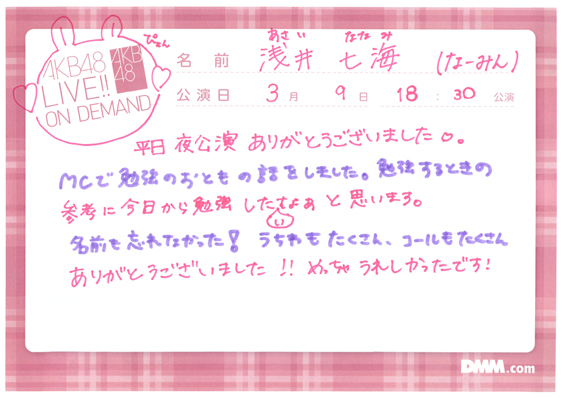 ぴょん
AKB48
LIVE!!
ON DEMAND
AKB
48
あさい ななみ
名前 浅井 七海 (なーみん)
公演日 3月 9日 18:30 公演
平日 夜公演 ありがとうございました♡。
MCで勉強のおともの話をしました。勉強するときの
参考に今日から勉強したいなぁと思います。
名前も忘れなかった! うちわもたくさん、コールもたくさん
ありがとうございました!! めっちゃうれしかったです!
DMM.com